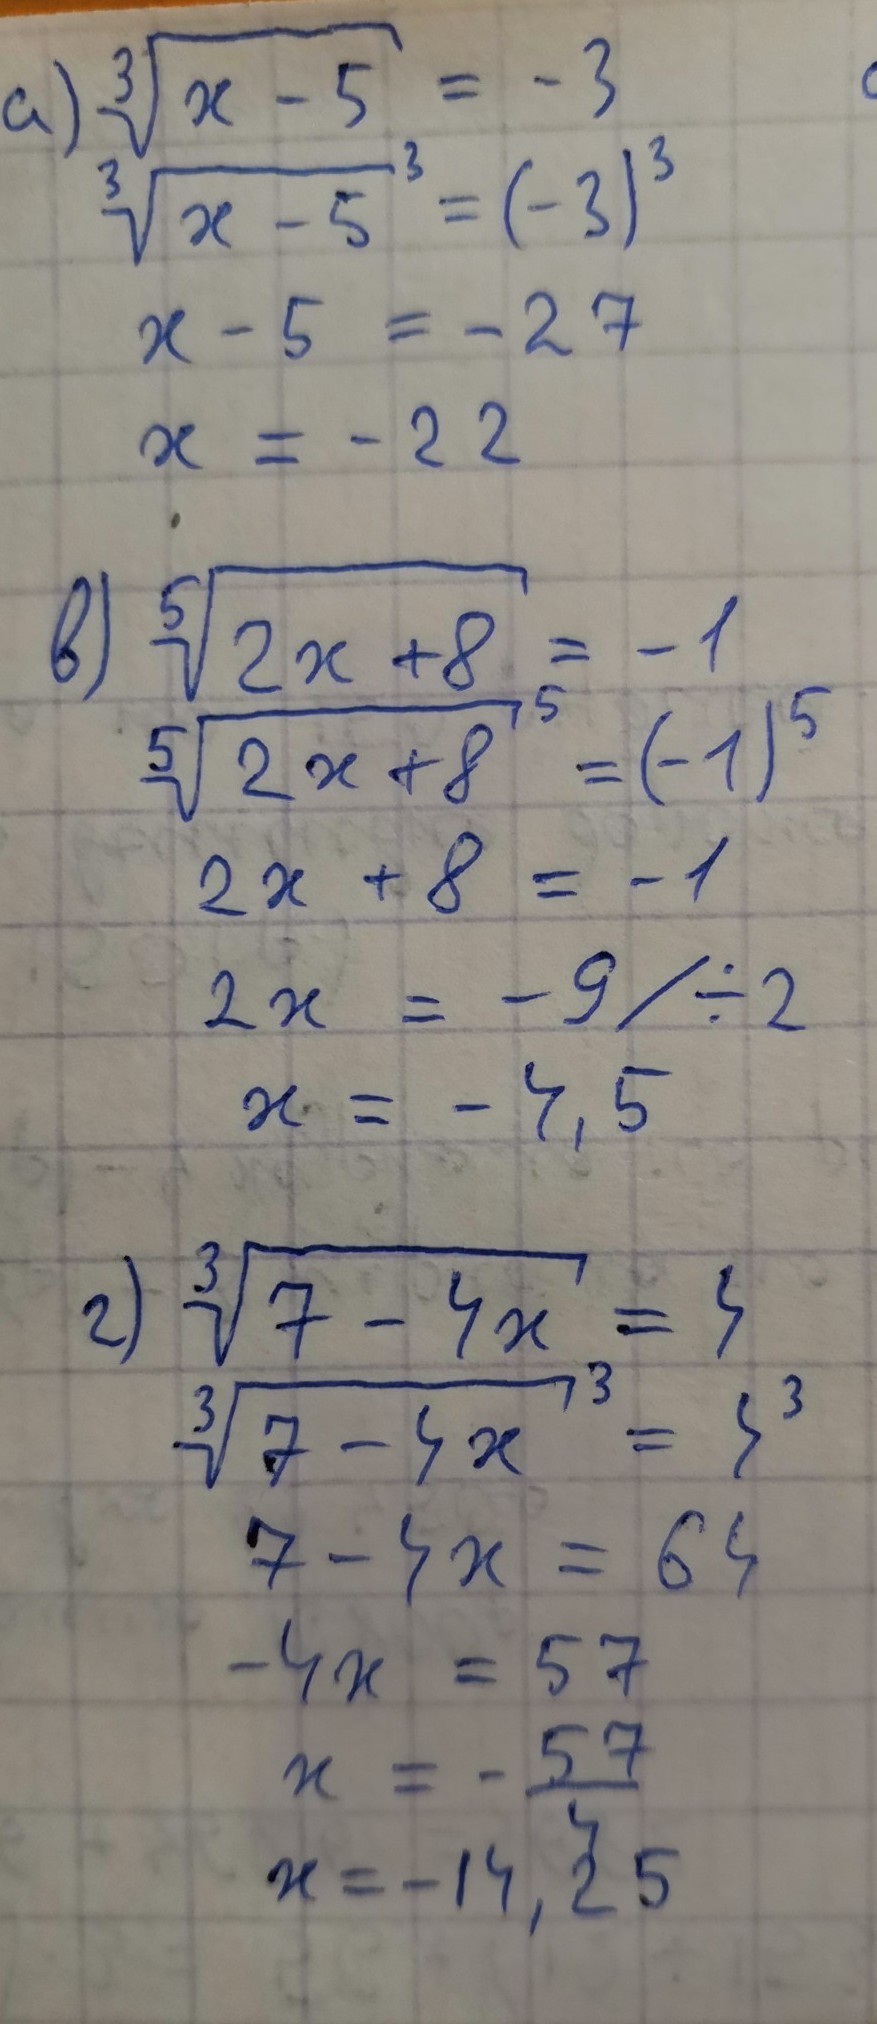 а) ∛x - 5 = - 3
∛x - 5³ = (-3)³
x - 5 = - 27
x = - 22
в) ⁵√2x + 8 = - 1
⁵√2x + 8⁵ = (-1)⁵
2x + 8 = - 1
2x = - 9 / ÷ 2
x = - 4,5
г) ∛7 - 4x = 4
∛7 - 4x³ = 4³
7 - 4x = 64
-4x = 57
x = - 57/4
x = -14,25